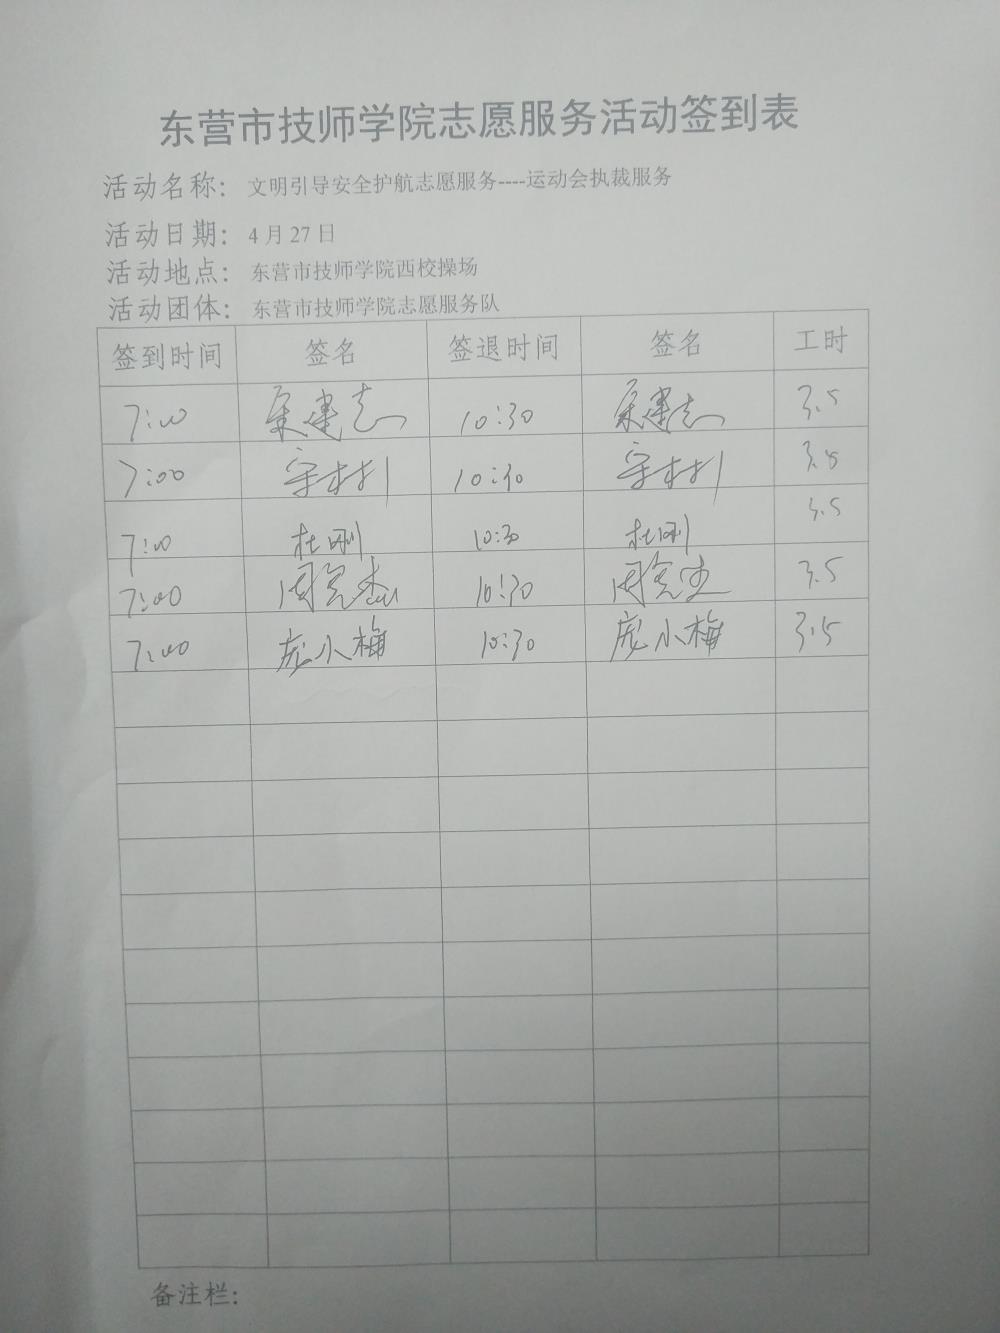 东营市技师学院志愿服务活动签到表
活动名称: 文明引导安全护航志愿服务----运动会执裁服务
活动日期: 4 月 27 日
活动地点: 东营市技师学院西校操场
活动团体: 东营市技师学院志愿服务队
签到时间 签名 签退时间 签名 工时
7:00 建志 10:30 建志 3.5
7:00 10:30 3.5
7:00 杜刚 10:30 杜刚 3.5
7:00 周 10:30 周 3.5
7:00 庞小梅 10:30 庞小梅 3.5
备注栏: